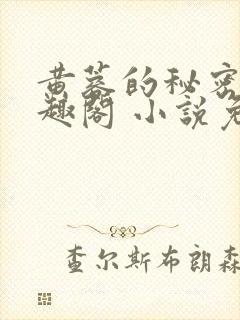 黄蓉的秘密
趣阁 小说免
查尔斯布朗森